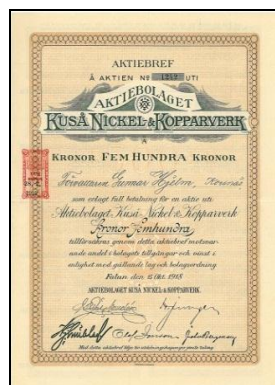 AKTIEBREF
Å AKTIEN Nº 1242 UTI
AKTIEBOLAGET
KUSÅ NICKEL-&KOPPARVERK
Å
KRONOR FEM HUNDRA KRONOR
Gunnar Hjelm,
som erlagt full betalning för en aktie uti
Aktiebolaget Kuså Nickel & Kopparverk
Kronor Femhundra
tillförsäkras genom detta aktiebref motsvar-
ande andel i bolagets tillgångar och vinst i
enlighet med gällande lag och bolagsordning
Falun den 15 Okt. 1918
AKTIEBOLAGET KUSÅ NICKEL-&KOPPARVERK.
Med detta aktiebref följa